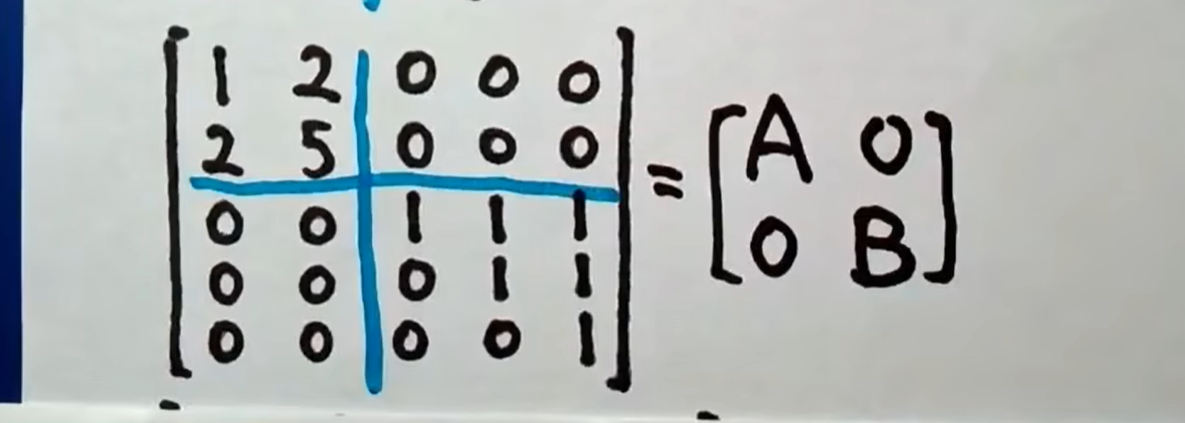 1 2 0 0 0
2 5 0 0 0
0 0 1 1 1
0 0 0 1 1
0 0 0 0 1
=
A 0
0 B